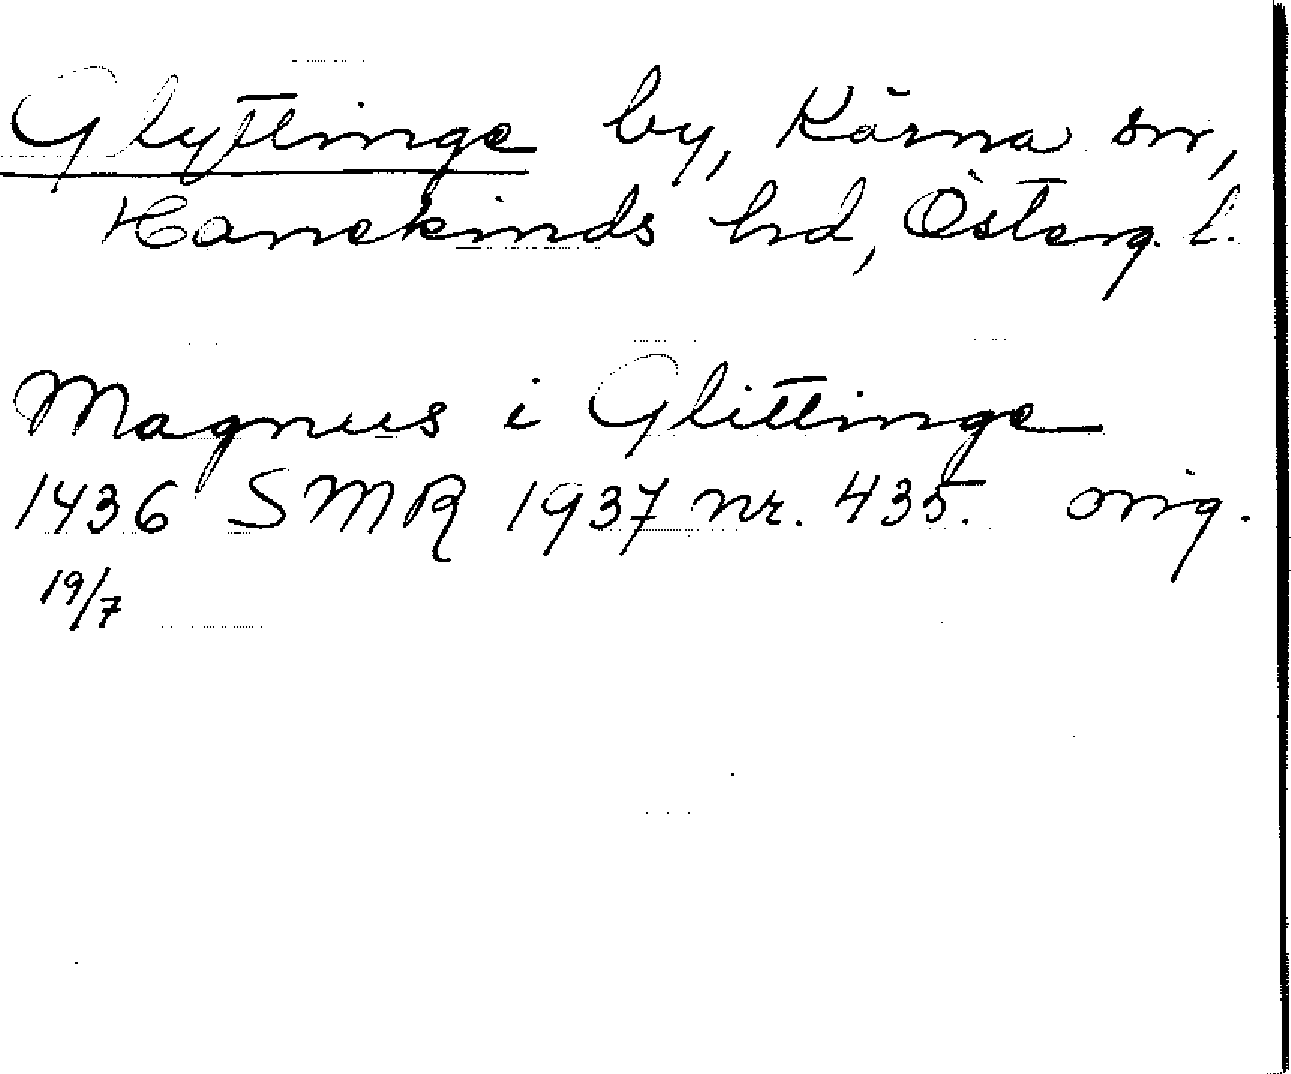 Glyttinge by, Kärna sn,
Hanekinds hd, Österg. l.
Magnus i Glittinge
1436 SMR 1937 nr. 435. orig.
19/7